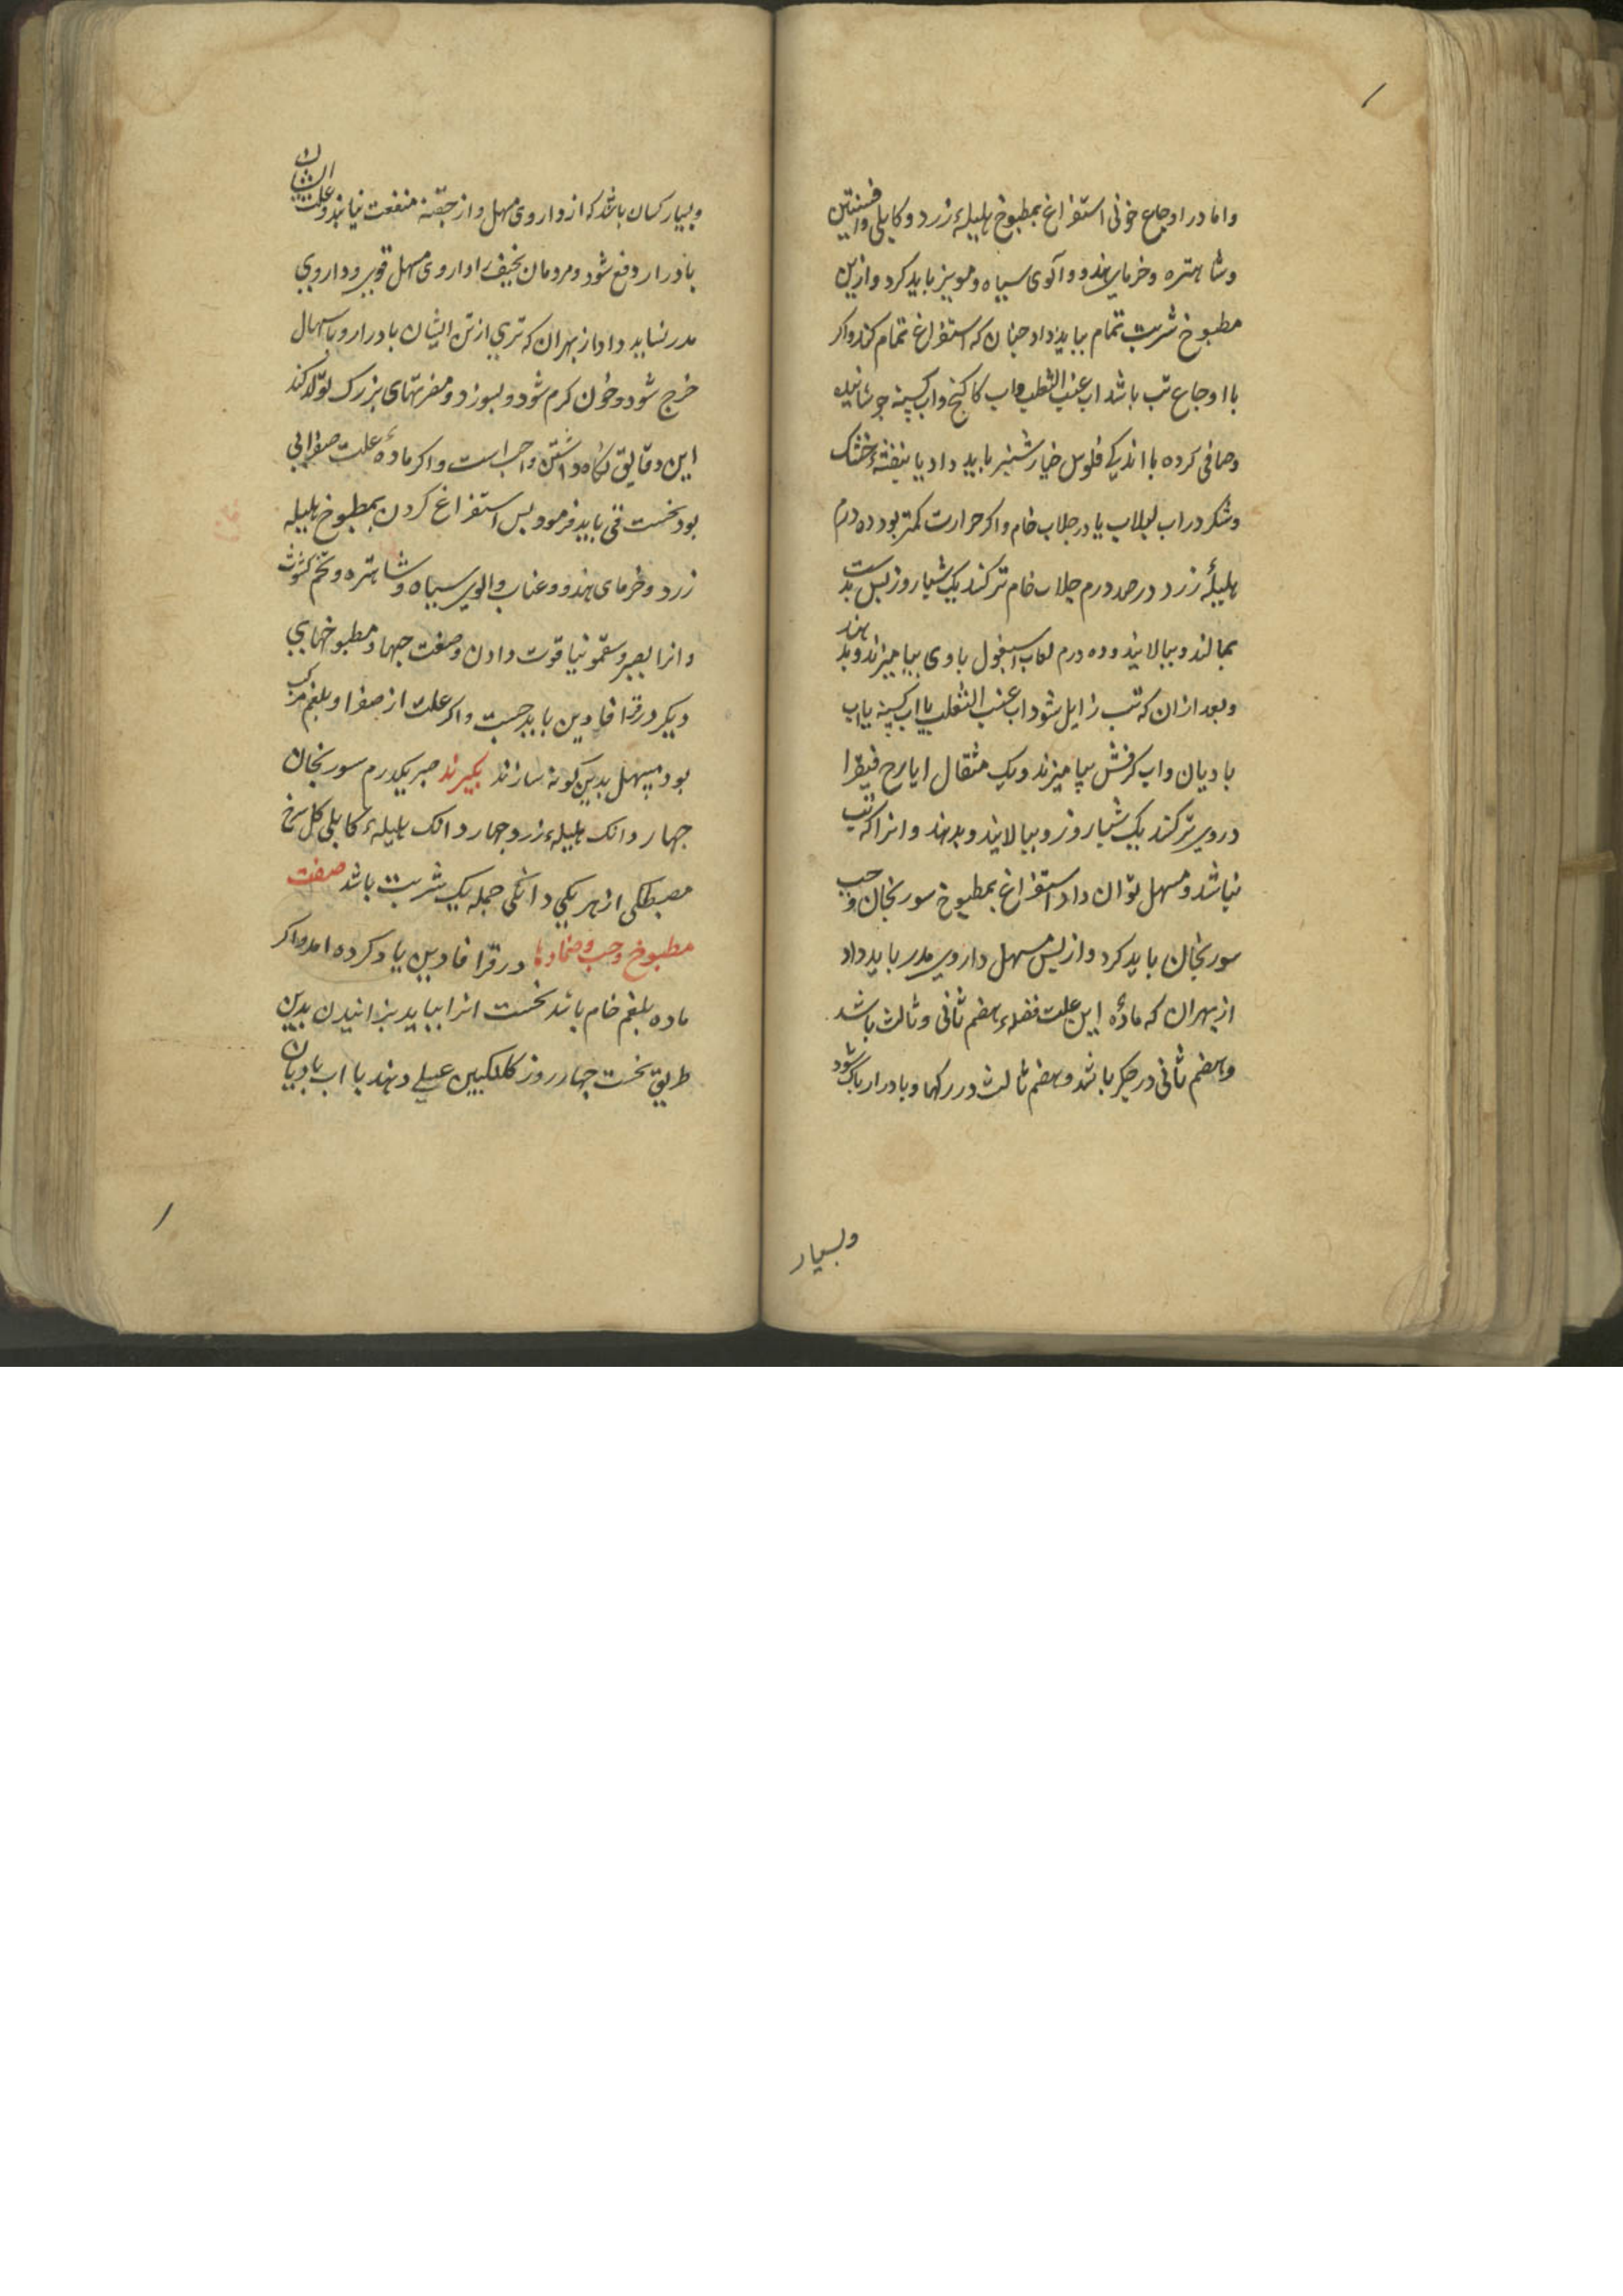 واما در اوجاع خونی استفراغ بمطبوخ هلیلهٔ زرد و کابلی وافسنتین
وشاهتره وخرمای هندو وآلوی سیاه ومویز باید کرد وازین
مطبوخ شربت تمام بباید داد جنان که استفراغ تمام کند واکر
با اوجاع تب باشد اب عنب الثعلب واب کاکنج واب کسنه جوشانیده
وصافی کرده با اندکی فلوس خیارشنبر باید داد یا بنفشهٔ خشک
وشکر در اب لبلاب یا در جلاب خام واکر حرارت کمتر بود ده درم
هلیلهٔ زرد در صد درم جلاب خام تر کنند یک شبا روز بس بدست
بمالند وببالایند وده درم لعاب اسبغول با وی بیامیزند وبدهند
وبعد ازان که تب زایل شود اب عنب الثعلب یا اب کسنه یا اب
بادیان واب کرفش بیامیزند ویک مثقال ایارج فیقرا
دروی تر کنند یک شبا روز وببالایند وبدهند وانرا که تب
نباشد ومسهل توان داد استفراغ بمطبوخ سورنجان وحب
سورنجان باید کرد واز بس مسهل داروی مدر باید داد
ازبهران که مادهٔ این علت فضلهٔ هضم ثانی وثالث باشد
وهضم ثانی در جکر باشد وهضم ثالث در رکها وبادرار باک شود
وبسیار
وبسیار کسان باشد که از داروی مسهل واز حقنه منفعت نیابند وعلت ایشان
بادرار دفع شود ومردمان نحیف را داروی مسهل قوی وداروی
مدر نشاید داد از بهران که تری از تن ایشان بادرار وباسهال
خرج شود وخون کرم شود وبسوزد ومضرتهای بزرک تولد کند
این دقایق نکاه داشتن واجب است واکر مادهٔ علت صفرایی
بود نخست قی باید فرمود وبس استفراغ کردن بمطبوخ هلیله
زرد وخرمای هندو وعناب والوی سیاه وشاهتره وتخم کشوث
وانرا بصبر وسقمونیا قوت دادن وصفت حبها ومطبوخهای
دیکر در قرافادین باید جست واکر علت از صفرا وبلغم مرکب
بود مسهل بدین کونه سازند بکیرند صبر یکدرم سورنجان
جهار دانک هلیلهٔ زرد جهار دانک هلیلهٔ کابلی کل سرخ
مصطکی از هر یکی دانکی جمله یک شربت باشد صفت
مطبوخ وحب وضمادها در قرافادین یاد کرده امد واکر
ماده بلغم خام باشد نخست انرا بباید بزانیدن بدین
طریق نخست جهار روز کلنکبین عسلی دهند با اب بادیان